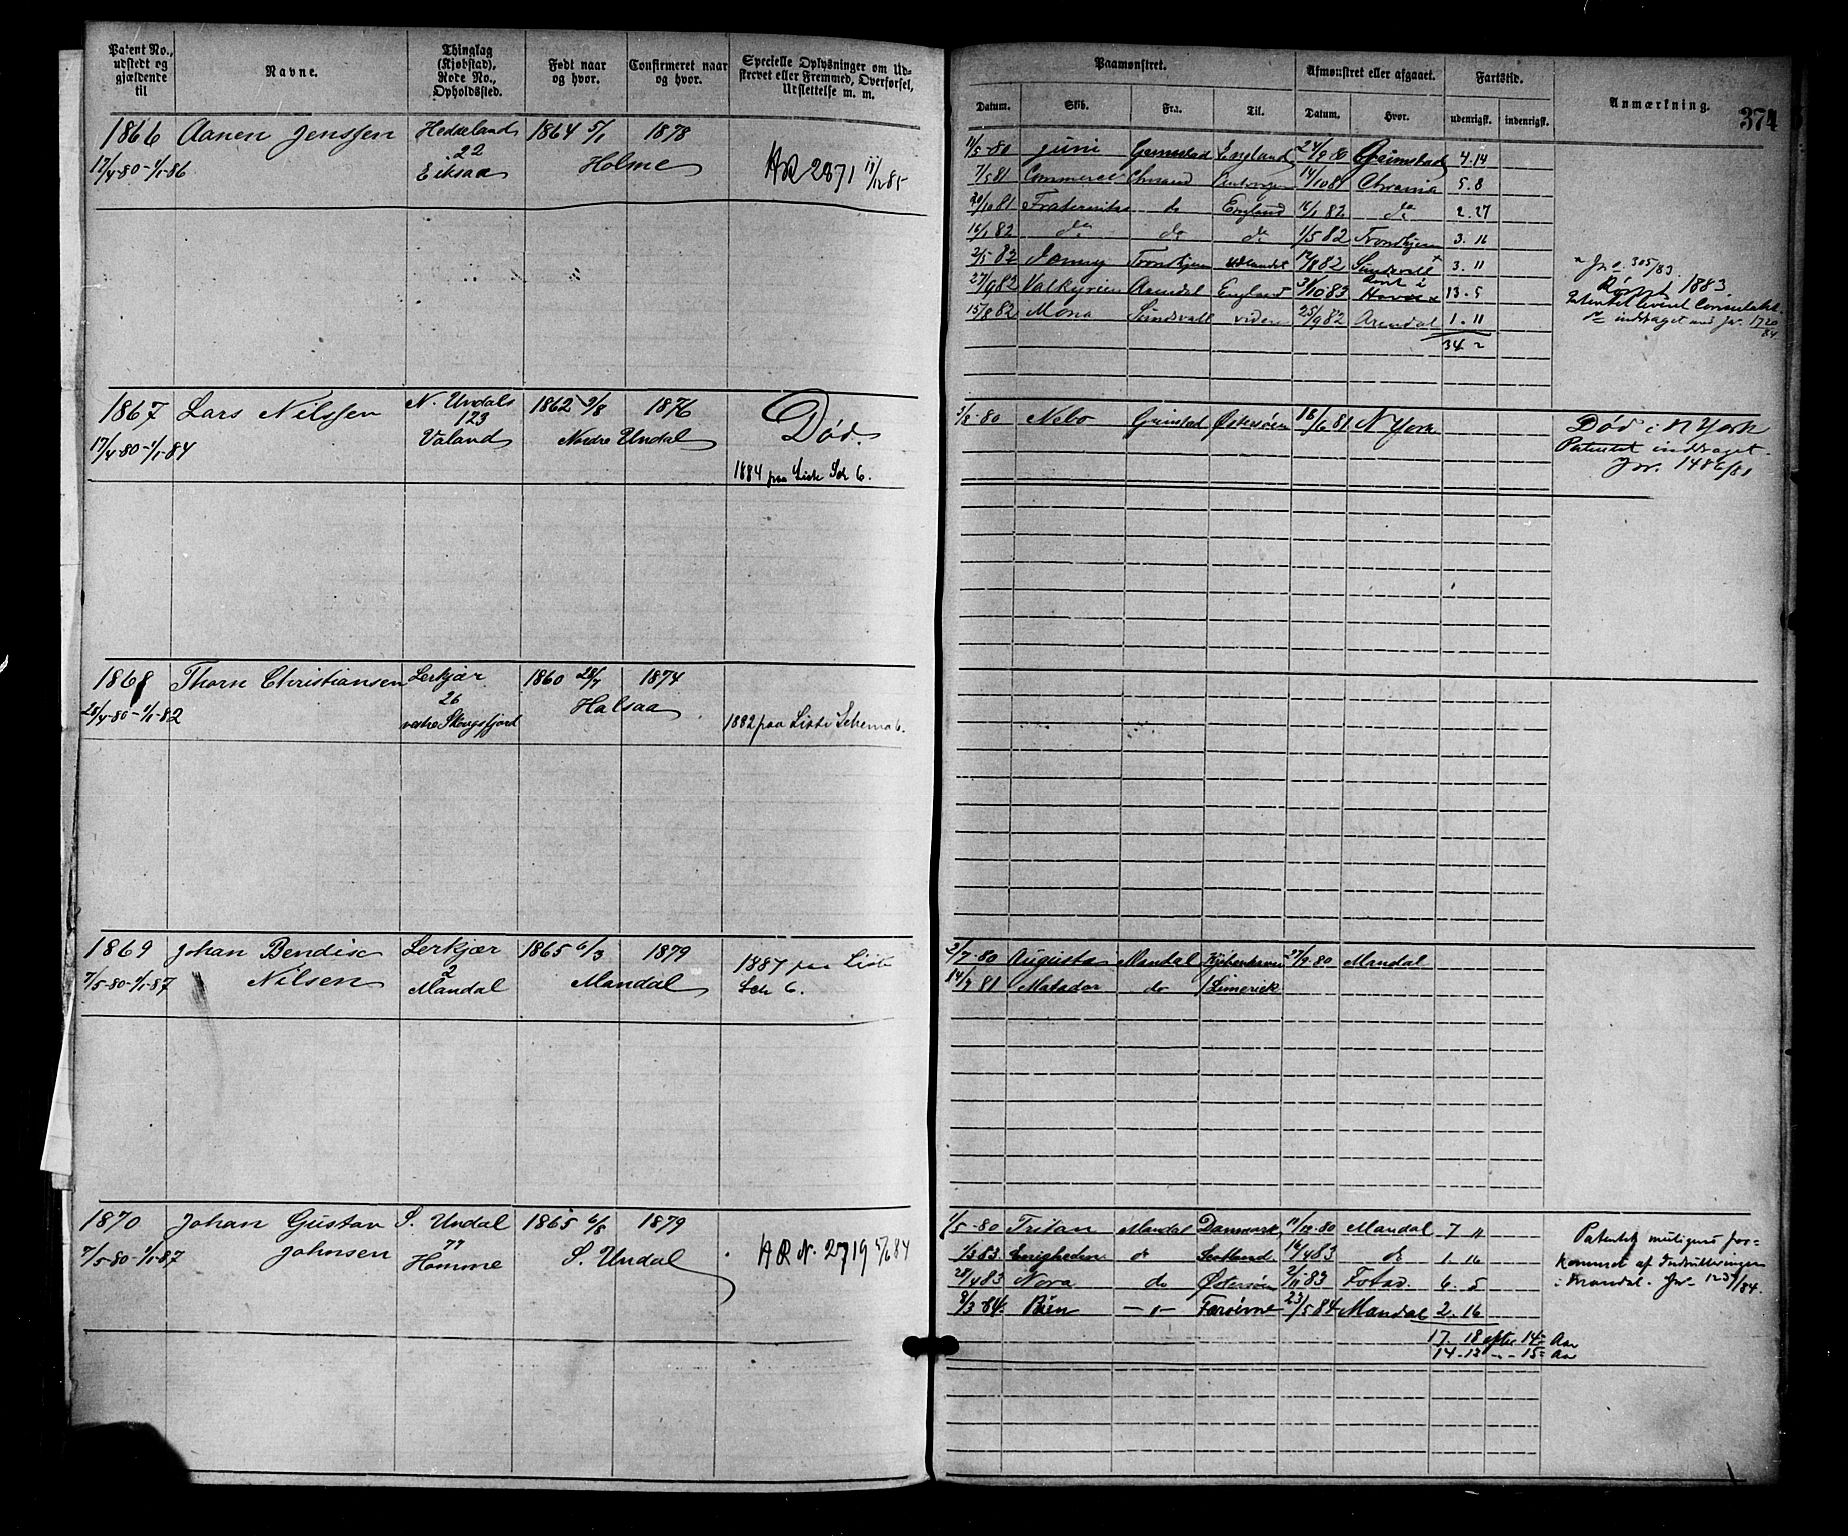 Patent No., udstedt og gjældende til
Navne.
Thinglag (Kjøbstad), Rode No., Opholdssted.
Født naar og hvor.
Confirmeret naar og hvor.
Specielle Oplysninger om Udskrevet eller Fremmed, Overførsel, Udslettelse m. m.
Paamønstret.
Afmønstret eller afgaaet.
Fartstid.
Anmærkning.
374
Datum. Skib. Fra. Til. Datum. Hvor. udenrigsk. indenrigsk.
1866 Aanen Jenssen Hedseland 1864 5/1 1878
17/4-80-1/1-86 22 Eiksaa Holme AR 2871
1/5-80 Juni England 24/9 80 Grimstad 4.14
7/5 81 Commerce 14/10 81 5.8
20/10 81 Fraternitas do England 16/1 82 do 2.27
16/1 82 do do do 1/5 82 Trondhjem 3.16
2/5 82 Trondhjem udlandet 17/8 82 Sundsvall 3.11
27/9 82 Valkyrien Arendal England 3/10 83 13.5
15/8 82 Mona Sundsvall viden 25/9 82 Arendal 1.11
34 2
Jr. 305/83
Rømt 1883
inddraget
1867 Lars Nilssen N. Undals 1862 3/8 1876 Død.
17/4-80-1/1-84 123 Valand Nordre Undal
1884 paa Liste Sch 6.
3/8-80 Nebo Grimstad Østersøen 18/6 81 N York
Død i N York
Patentet inddraget.
Jr. 1486/81
1868 Thorn Christiansen Lerkjær 1860 28/7 1874
28/4-80-1/1-82 26 vestre Skogsfjord Halsaa 1882 paa Liste Schema 6.
1869 Johan Bendix Lerkjær 1865 6/3 1879 1887 paa Liste
7/5-80-1/1-87 Nilsen 2 Mandal Mandal Sch 6.
2/7-80 Augusta Mandal Kjøbenhavn 27/9-80 Mandal
14/7 81 Matador do Limerick
1870 Johan Gustav S. Undal 1865 6/8 1879
7/5-80-1/1-87 Johnsen 77 Homme S. Undal AR N. 2719 5/6 84
1/5-80 Tritan Mandal Danmark 11/12-80 Mandal 7 "
1/3 83 Enigheden do Scotland 16/4 83 do 1.16
28/4 83 Nora do Østersøen 2/11 83 Fstad. 6.5
8/3-84 -"- Færøerne 23/5 84 Mandal 2.16
17.18 efter 14 Aar
14.13 -"- 15 Aar
Patentet muligens forkommet af Indrulleringen i Mandal. Jr. 1235/84.